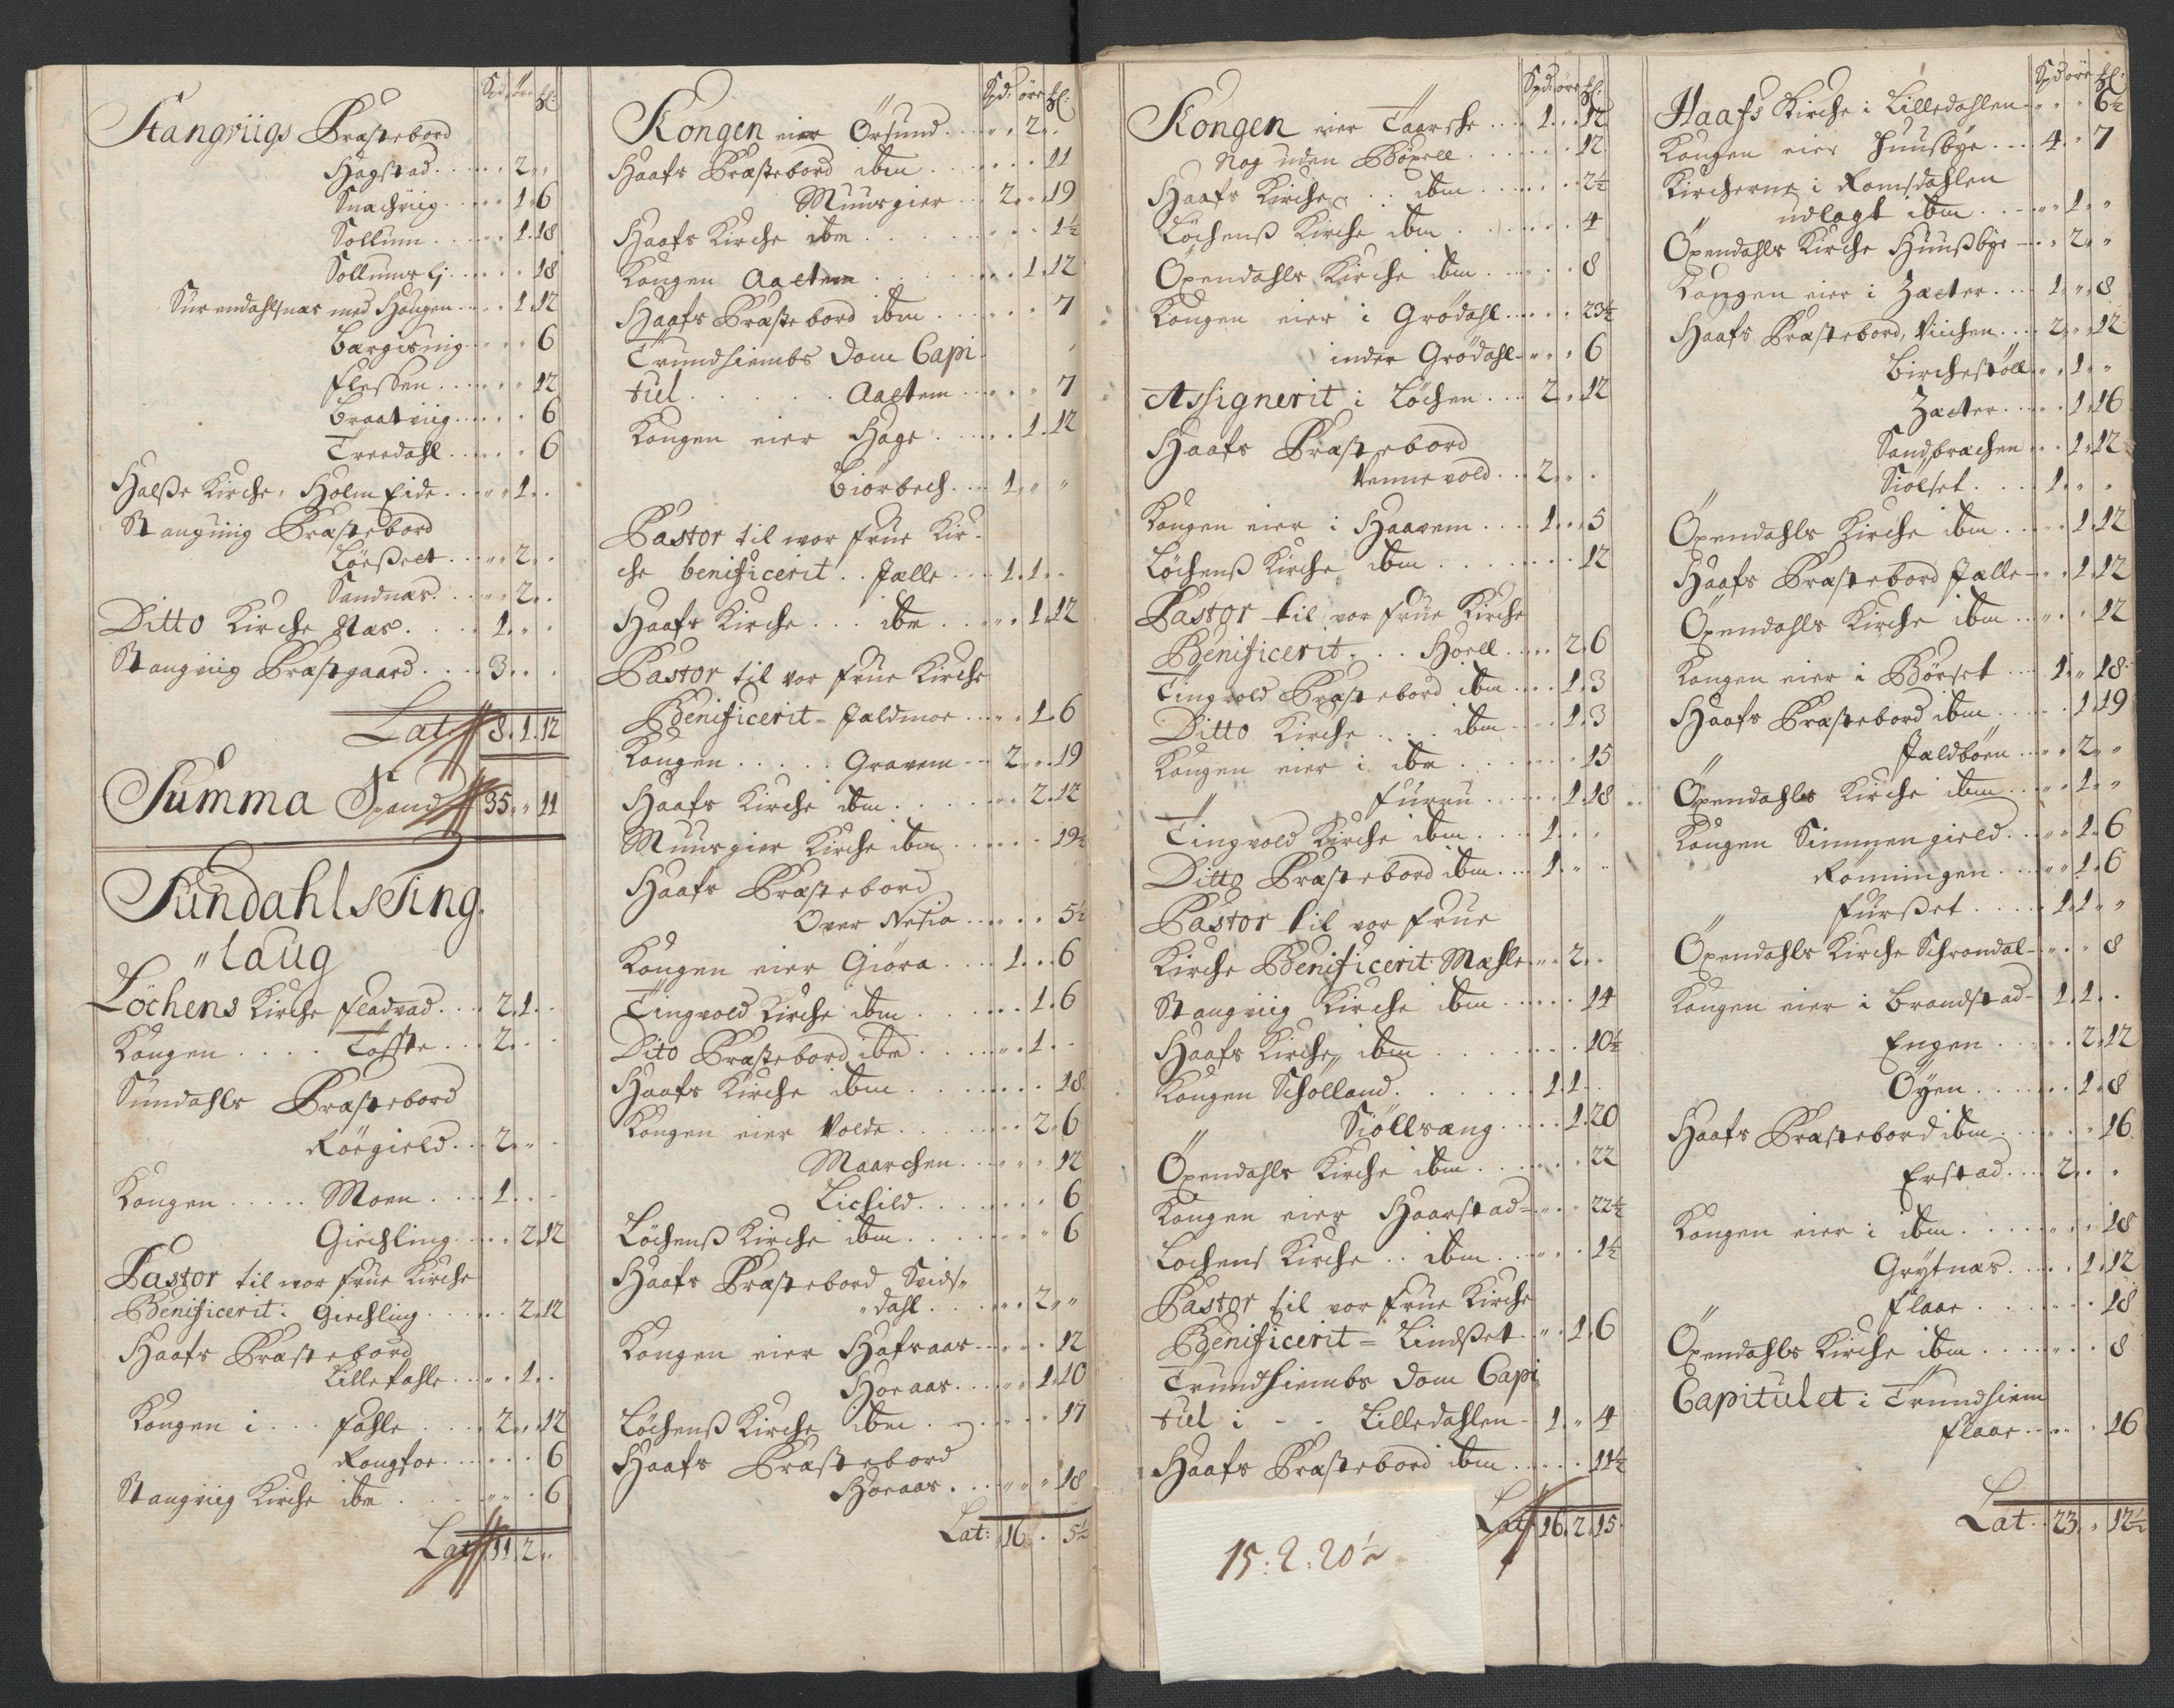 Spd: öre ℔:
Stangviigs Præstebord
Hagstad . . . 2 . .
Snachviig . . . 1. 6
Sollum . . . 1. 18
Sollums Ej . . . 18
Surendahlsnæs med Hougen . . . 1. 12
Bærgisviig . . . 6
Flessen . . . 12
Braatviig . . . 6
Treedahl . . . 6
Halsse Kirche, Holm Eide . . . 1 . .
Stangviig Præstebord
Lörsset . . . 2 . .
Sandnæs . . . 2 . .
Ditto Kirche Næs . . . 1 . .
Stangviig Præstgaard . . . 3 . .
Lat: 8. 1. 12
Summa Spand 35 " 11
Sundahls Ting
" laug
Löchens Kirche Fladvad . . . 2. 1 .
Kongen . . . Tofte . . . 2 . .
Sundahls Præstebord
Röegield . . . 2 . .
Kongen . . . Moen . . . 1 . .
Girchling . . . 2. 12
Pastor til vor frue Kirche
Benificerit: Girchling . . . 2. 12
Haafs Præstebord
Lille fahle . . . 1 . .
Kongen i . . . fahle . . . 2 . . 12
Rongfoe . . . 6
Stangviig Kirche ibm . . . 6
Lat 11. 2 "
Spd: öre ℔:
Kongen eier Örsund . . . 2 .
Haafs Præstebord ibm . . . 11
Muusgier . . . 2 . . 19
Haafs Kirche ibm . . . 1½
Kongen Aaetem . . . 1. 12
Haafs Præstebord ibm . . . 7
Trundhiembs Dom Capi
tul . . . Aaetem . . . 7
Kongen eier Hage . . . 1. 12
Biörbech . . . 1 " "
Pastor til vor frue Kir-
che benificerit . . Jælle . . . 1. 1 . .
Haafs Kirche . . . ibm . . . 1. 12
Pastor til vor frue Kirche
Benificerit - Jældmoe . . . 1. 6
Kongen . . . Gravem . . . 2 . . 19
Haafs Kirche ibm . . . 2. 12
Muusgier Kirche ibm . . . 19½
Haafs Præstebord
Over Nesia . . . 5½
Kongen eier Giöra . . . 1 . . 6
Tingvold Kirche ibm . . . 1. 6
Dito Præstebord ibm . . . 1 .
Haafs Kirche ibm . . . 18
Kongen eier Volde . . . 2. 6
Maarchen . . . 12
Lichild . . . 6
Löchenss Kirche ibm . . . 6
Haafs Præstebord Svids"
"dahl . . . 2 " "
Kongen eier Hafsaas . . . 12
Hoeaas . . . 1. 10
Löchenss Kirche ibm . . . 17
Haafs Præstebord
Hoeaas . . . 18
Lat: 16 . 5½
Spd: öre ℔:
Kongen eier Taarshe . . . 1 . . 12
Nog uden Böxell . . . 12
Haafs Kirche . . . ibm . . . 2½
Löchenss Kirche ibm . . . 4
Öxendahls Kirche ibm . . . 8
Kongen eier i Grödahl . . . 23½
inder Grödahl . . . 6
Assignerit i Löchen . . . 2 . 12
Haafs Præstebord
Vennevold . . . 2 . .
Kongen eier i Haavem . . . 1 . . 5
Löchenss Kirche ibm . . . 12
Pastor til vor frue Kirche
Benificerit . . . Hoell . . . 2. 6
Tingvold Præstebord ibm . . . 1. 3
Ditto Kirche . . . ibm . . . 1. 3
Kongen eier i ibm . . . 15
" Furru . . . 1. 18
Tingvold Kirche ibm . . . 1 . .
Ditto Præstebord ibm . . . 1 . .
Pastor til vor frue
Kirche Benificerit Mæhle . . . 2 . .
Stangviig Kirche ibm . . . 14
Haafs Kirche ibm . . . 10½
Kongen Schölland . . . 1. 1 .
" Siöllsæng . . . 1. 20
Öxendahls Kirche ibm . . . 22
Kongen eier Haarstad . . . 22½
Lochens Kirche . . ibm . . . 1½
Pastor til vor frue Kirche
Benificerit = Lindsset . . . 1. 6
Trundhiembs Dom Capi
tul i - - Lilledahlen - 1 . 4
Haafs Præstebord ibm . . . 11½
Lat 16. 2. 15
15: 2: 20½
Spd öre ℔:
Haafs Kirche i Lilledahlen . . . 6½
Kongen eier Huusbye . . . 4 . . 7
Kircherne i Romsdahlen
" udlagt ibm . . . 1 " "
Öxendahls Kirche Huussbye . . . 2 " "
Kongen eier i Zæter . . . 1 " " 8
Haafs Præstebord, Viichen . . . 2 " 12
Birchestöll . . . 1 " "
Zæter . . . 1. 16
Sandbrachen . . . 1. 12
Siölset . . . 1 . .
Öxendahls Kirche ibm . . . 1. 12
Haafs Præstebord Jælle . . . 1. 12
Öxendahls Kirche ibm . . . 12
Kongen eier i Börset . . . 1 " 18
Haafs Præstebord ibm . . . 1. 19
" Jældböen . . . 2 " "
Öxendahls Kirche ibm . . . 1 " "
Kongen Simmengield . . . 1. 6
Rönningen . . . 1. 6
" Fursset . . . 1. 1 " "
Öxendahls Kirche Schrondal . . . 8
Kongen eier i Brandstad . . . 1. 1 . .
Engen . . . 2. 12
Öyen . . . 1. 8
Haafs Præstebord ibm . . . 16
Erstad . . . 2 . .
Kongen eier i ibm . . . 18
Grytnæs . . . 1. 12
" Flaae . . . 18
Öxendahls Kirche ibm . . . 8
Capitulet i Trundhiem
Flaae . . . 16
Lat. 23 . 12½